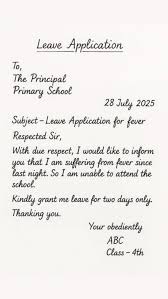 Leave Application
To,
The Principal
Primary School
28 July 2025
Subject - Leave Application for fever
Respected Sir,
With due respect, I would like to inform
you that I am suffering from fever since
last night. So I am unable to attend the
school.
Kindly grant me leave for two days only.
Thanking you.
Your obediently
ABC
Class - 4th